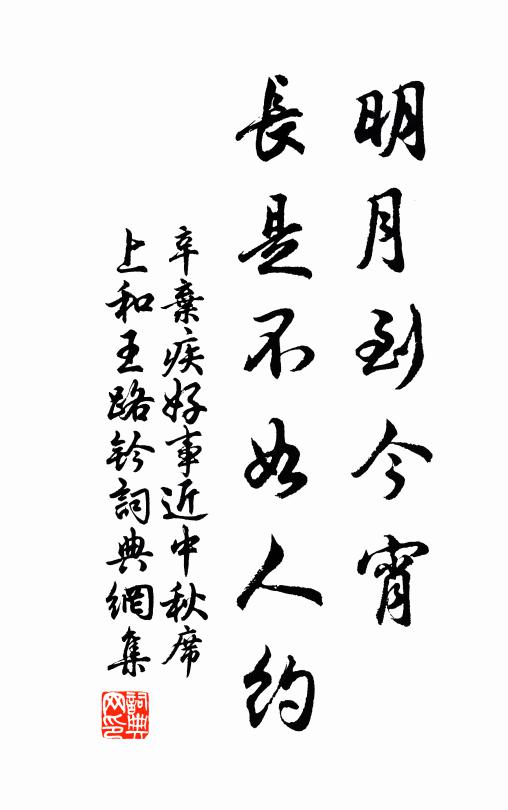 明月到今宵
長是不如人約
辛棄疾好事近中秋席
上和王路鈐詞典網集
詞典
网印